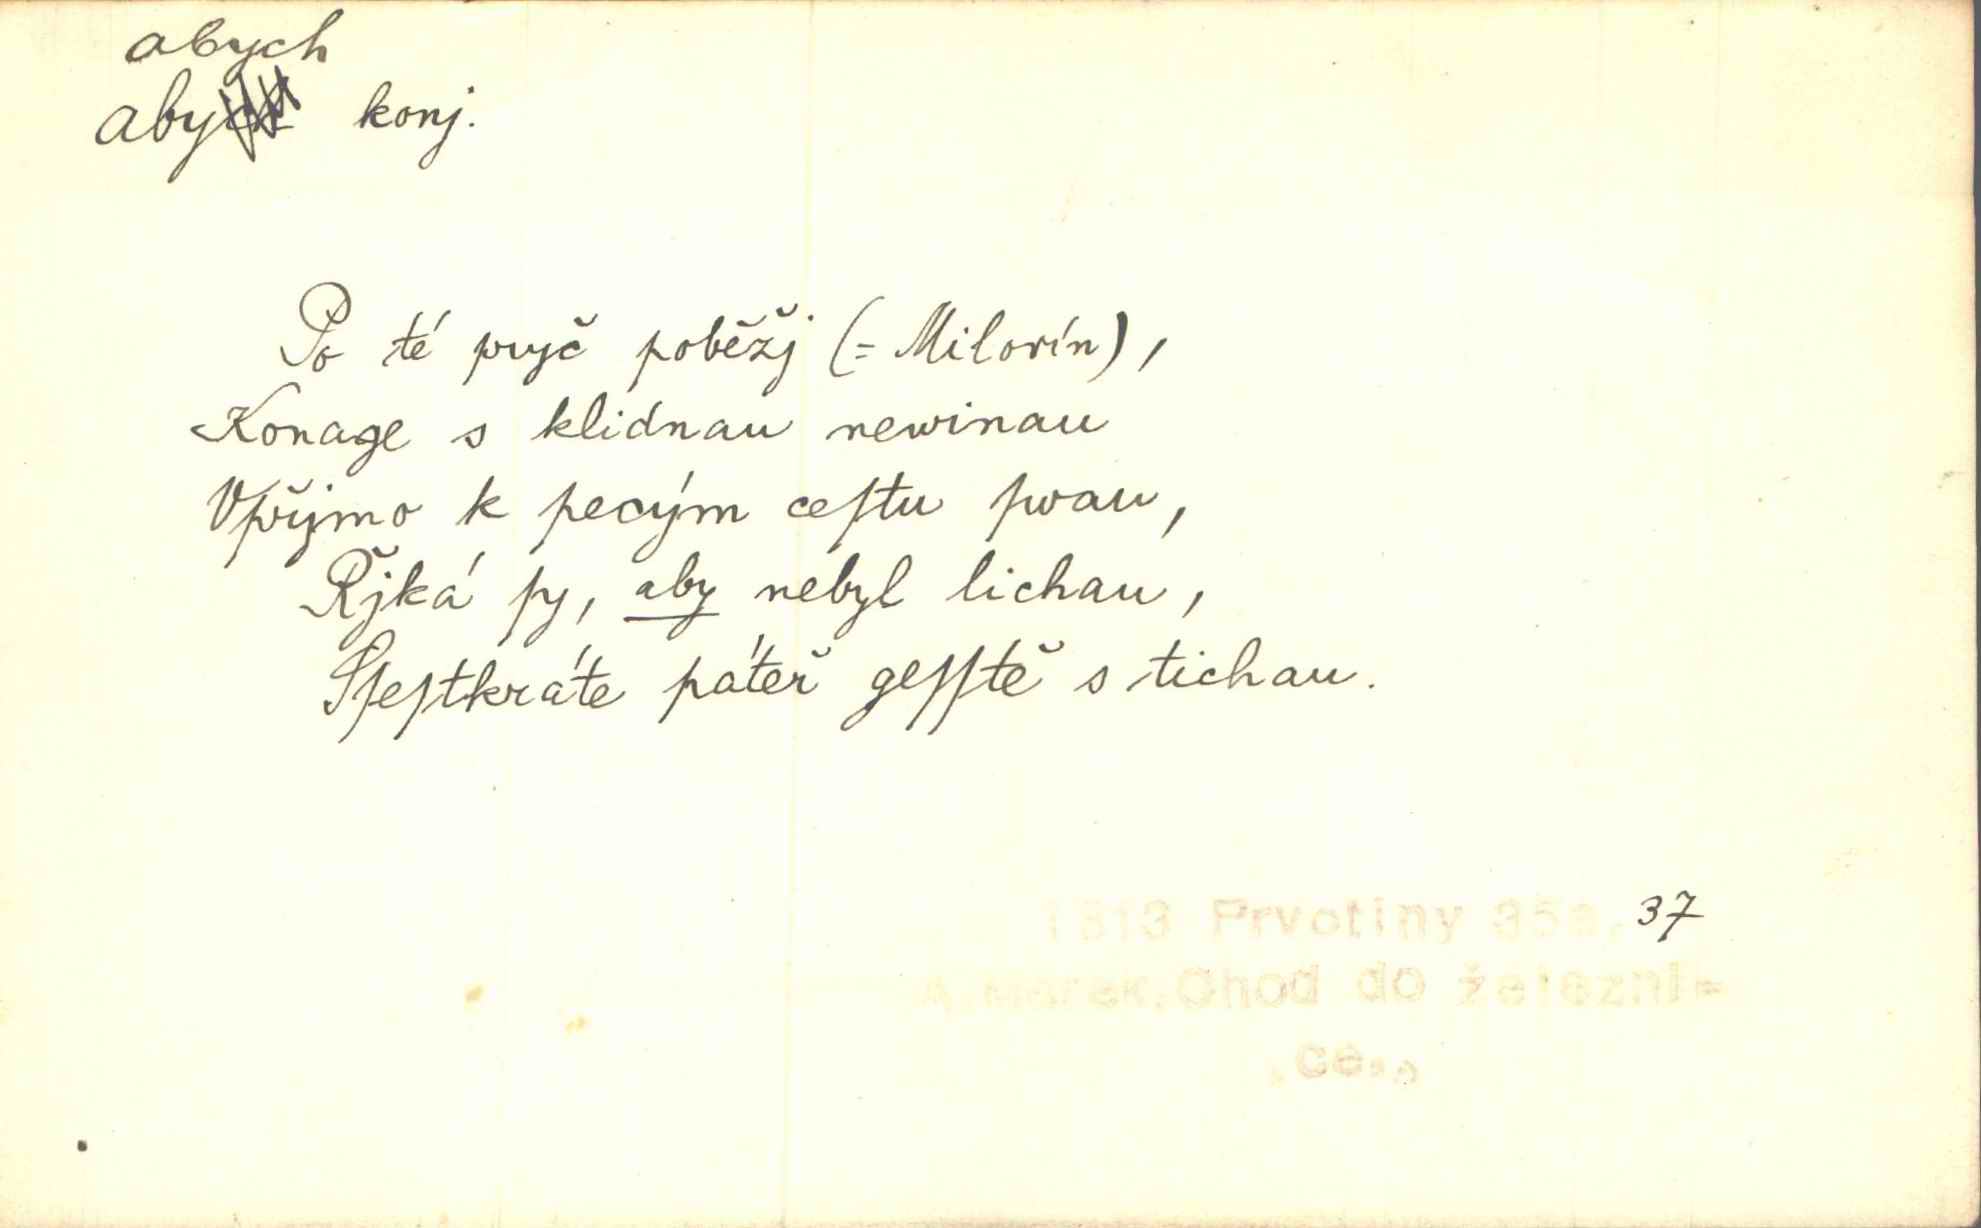 abych
aby konj.
Po té pryč poběžj (= Milovín),
Konage s klidnau newinau
Vpřjmo k pecým ceſtu ſwau,
Řjká ſy, aby nebyl lichau,
Sſeſtkráte páteř geſſtě s tichau.
1813 Prvotiny 35a, 37
A. Marek, Chod do železni=
ce.